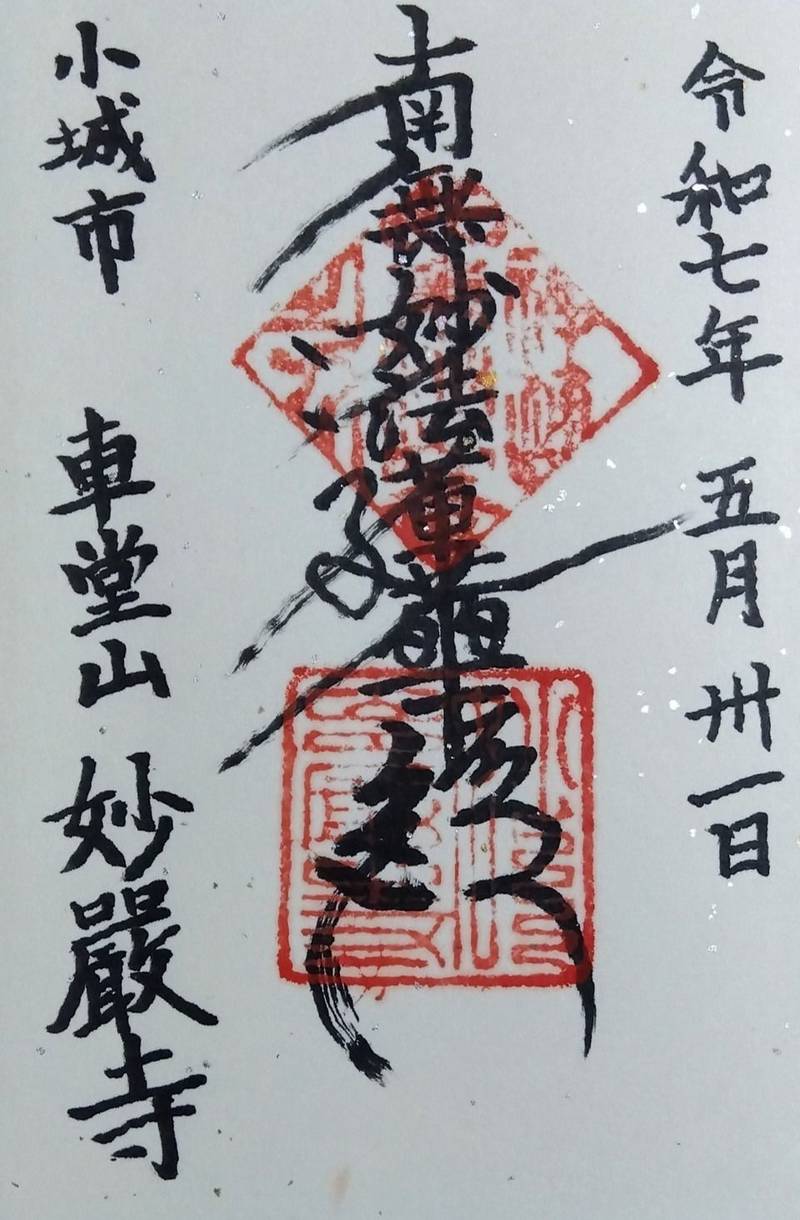 令和七年 五月 卅一日
南無妙法蓮華経
小城市 車堂山 妙嚴寺